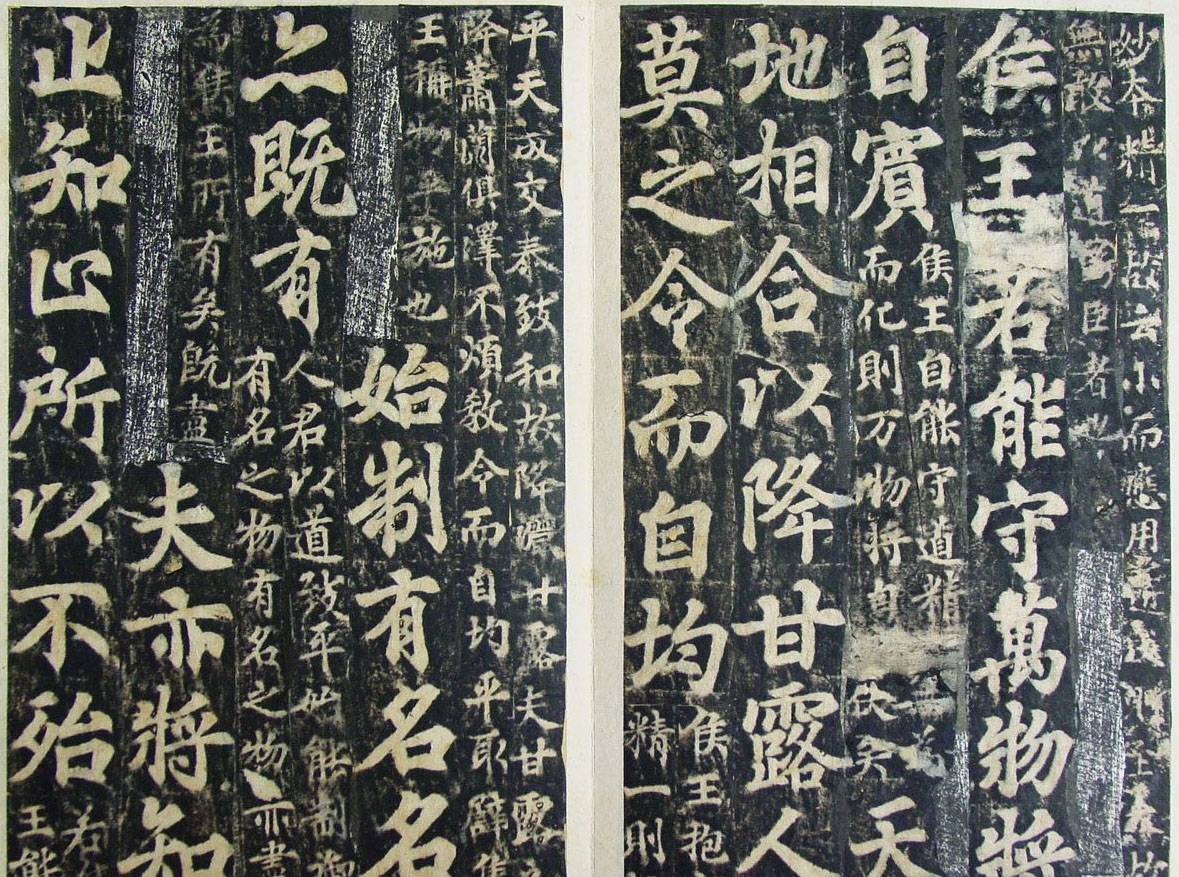 妙本精一故云小而應用
無敢以道為臣者也
侯王若能守萬物將
自賓
侯王自能守道精
而化則万物將自
矣
天
地相合以降甘露人
莫之令而自均
侯王抱
精一則
平天成交泰致和故降濃甘露夫甘露
降蕭蘭俱澤不煩教令而自均平取譬侯
王稱物平施也
始制有名名
亦既有
人君以道致平始能制御
有名之物有名之物亦盡
為侯王所有矣既盡
夫亦將知
止知止所以不殆
若
王能